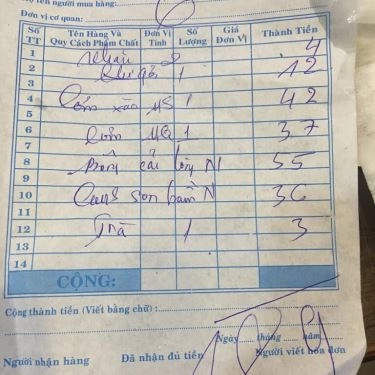 tên người mua hàng:
Đơn vị cơ quan:
Số TT Tên Hàng Và Quy Cách Phẩm Chất Đơn Vị Tính Số Lượng Giá Đơn Vị Thành Tiền
1 4
2 1 12
3
4 Cơm xào 1 42
5
6 Cơm 1 37
7
8 Bông cải lòng N 55
9
10 Canh son hầm N 36
11
12 Trà 1 3
13
14
CỘNG:
Cộng thành tiền (Viết bằng chữ) :
Ngày tháng năm
Người nhận hàng Đã nhận đủ tiền Người viết hóa đơn